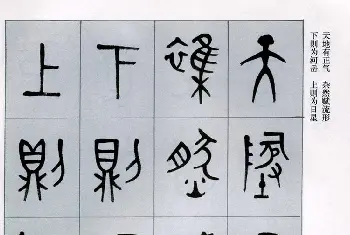 天地有正气 杂然赋流形
下则为河岳 上则为日星
天地
雜然
下則
上則